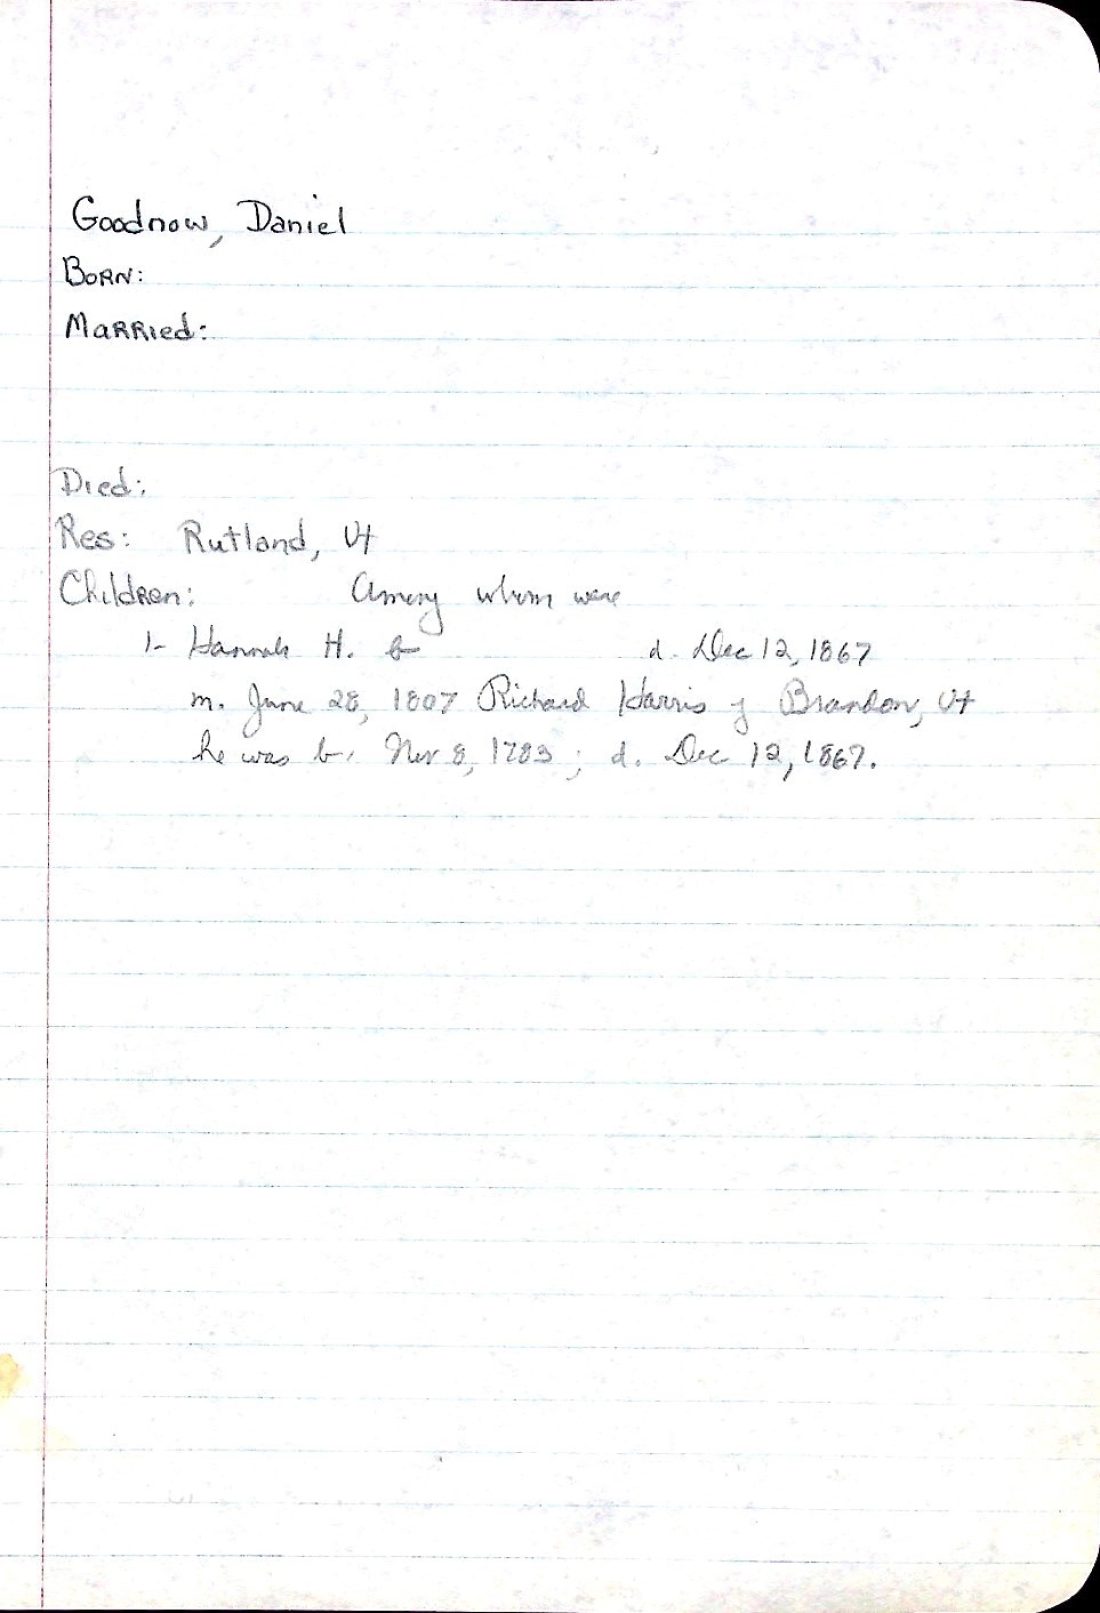 Goodnow, Daniel
Born:
Married:
Died:
Res: Rutland, Vt
Children: Among whom were
1- Hannah H. b d. Dec 12, 1867
m. June 28, 1807 Richard Harris of Brandon, Vt
he was b. Nov 8, 1783; d. Dec 12, 1867.